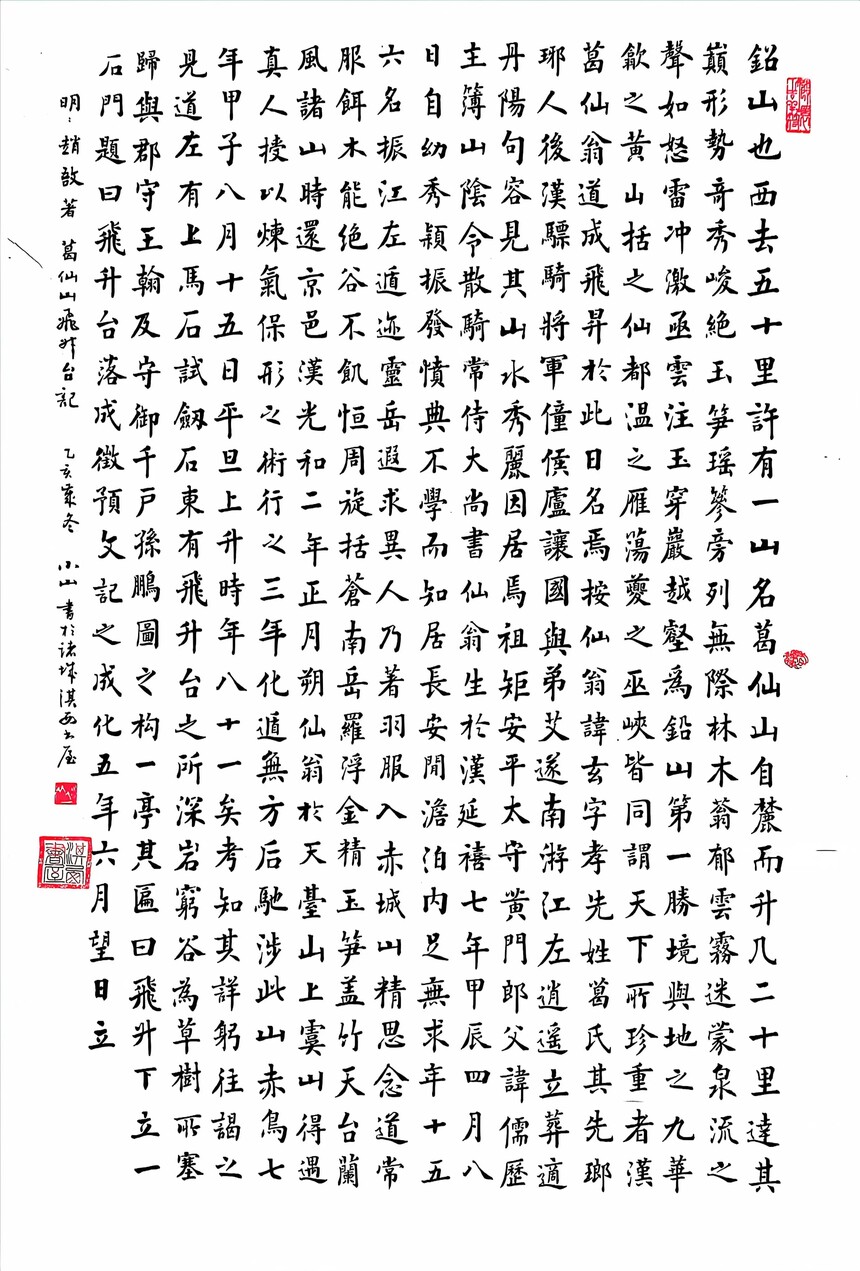 鉛山也西去五十里許有一山名葛仙山自麓而升几二十里達其
巔形勢奇秀峻絕玉笋瑤篸旁列無際林木蓊郁雲霧迷蒙泉流之
聲如怒雷冲激亟雲注玉穿巖越壑為鉛山第一勝境與地之九華
歙之黃山括之仙都溫之雁蕩夔之巫峽皆同謂天下所珍重者漢
葛仙翁道成飛昇於此日名焉按仙翁諱玄字孝先姓葛氏其先瑯
琊人後漢驃騎將軍僮侯廬讓國與弟艾遂南游江左逍遙立葬適
丹陽句容見其山水秀麗因居焉祖矩安平太守黃門郎父諱儒歷
主簿山陰令散騎常侍大尚書仙翁生於漢延禧七年甲辰四月八
日自幼秀穎振發憤典不學而知居長安閒澹泊內足無求年十五
六名振江左遁迹靈岳遐求異人乃著羽服入赤城山精思念道常
服餌木能絕谷不飢恒周旋括蒼南岳羅浮金精玉笋盖竹天台蘭
風諸山時還京邑漢光和二年正月朔仙翁於天臺山上虞山得遇
真人授以煉氣保形之術行之三年化遁無方后馳涉此山赤烏七
年甲子八月十五日平旦上升時年八十一矣考知其詳躬往謁之
見道左有上馬石試劔石東有飛升台之所深岩窮谷為草樹所塞
歸與郡守王翰及守御千戸孫鵬圖之构一亭其匾曰飛升下立一
石門題曰飛升台落成徵預文記之成化五年六月望日立
明：趙啟著 葛仙山飛昇台記 乙亥歲冬 小山 書於诸城淇西書屋